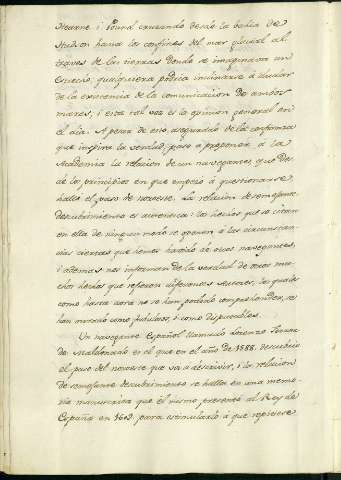 Hearne i Pound cruzando desde la bahia de
Hudson hasta los confines del mar glacial al
traves de las tierras donde se imaginava un
Estrecho, qualquiera podria inclinarse à dudar
de la existencia de la comunicacion de ambos
mares, i esta tal vez es la opinion general en
el dia. A pesar de esto, asegurado de la confianza
que inspira la verdad, paso à proponer à la
Academia la relacion de un navegante que des-
de los principios en que empezó à questionarse
halló el paso de noroeste. La relacion de semejante
descubrimiento es autentica: los hechos que se citan
en ella de ningun modo se oponen à las circunstan-
cias ciertas que hemos havido de otros navegantes,
i ademas nos informan de la verdad de otros mu-
chos hechos que refieren diferentes Autores, los quales
como hasta aora no se han podido comprehender, se
han mirado como fabulosos, i como disputables.
Un navegante Español llamado Lorenzo Ferrer
de Maldonado es el que en el año de 1588. descubrio
el paso del noroeste que va à describir, i la relacion
de semejante descubrimiento se halla en una memo-
ria manuscrita que èl mismo presentó al Rey de
España en 1609 para estimularlo à que repitiese